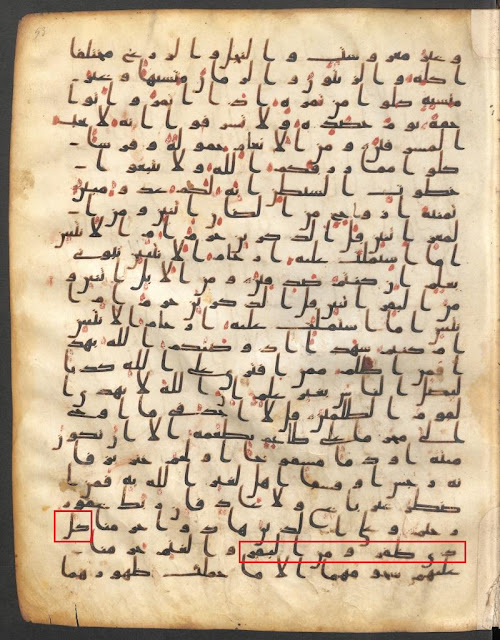 و غير معروشت والنخل والزرع مختلفا
اكله والزيتون والرمان متشبها وغير
متشبه كلوا من ثمره اذا اثمر واتوا
حقه يوم حصده ولا تسرفوا انه لا يحب
المسرفين ومن الانعم حمولة وفرشا
كلوا مما رزقكم الله ولا تتبعوا
خطوت الشيطن انه لكم عدو مبين
ثمنية ازوج من الضان اثنين ومن ا
لمعز اثنين قل الذكرين حرم ام الانثيين
اما اشتملت عليه ارحام الانثيين نبوني
بعلم ان كنتم صدقين ومن الابل اثنين و
من البقر اثنين قل الذكرين حرم ام الا
نثيين اما اشتملت عليه ارحام الانثيين
ام كنتم شهدا اذ وصكم الله بهذ
ا فمن اظلم ممن افترى على الله كذبا
ليضل الناس بغير علم ان الله لا يهدي ا
لقوم الظلمين قل لا اجد في ما اوحي
الي محرما على طاعم يطعمه الا ان يكون
ميتة او دما مسفوحا او لحم خنزير فا
نه رجس او فسقا اهل لغير الله به فمن ا
ضطر غير باغ ولا عاد فان ربك غفور
رحيم وعلى الذين هادوا حرمنا كل
ذي ظفر ومن البقر والغنم حرمنا
عليهم شحومهما الا ما حملت ظهورهما